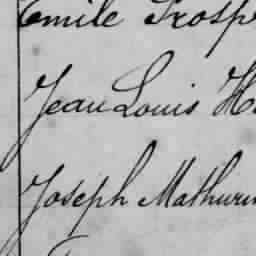 Emile Prosp
Jean Louis H
Joseph Mathurin